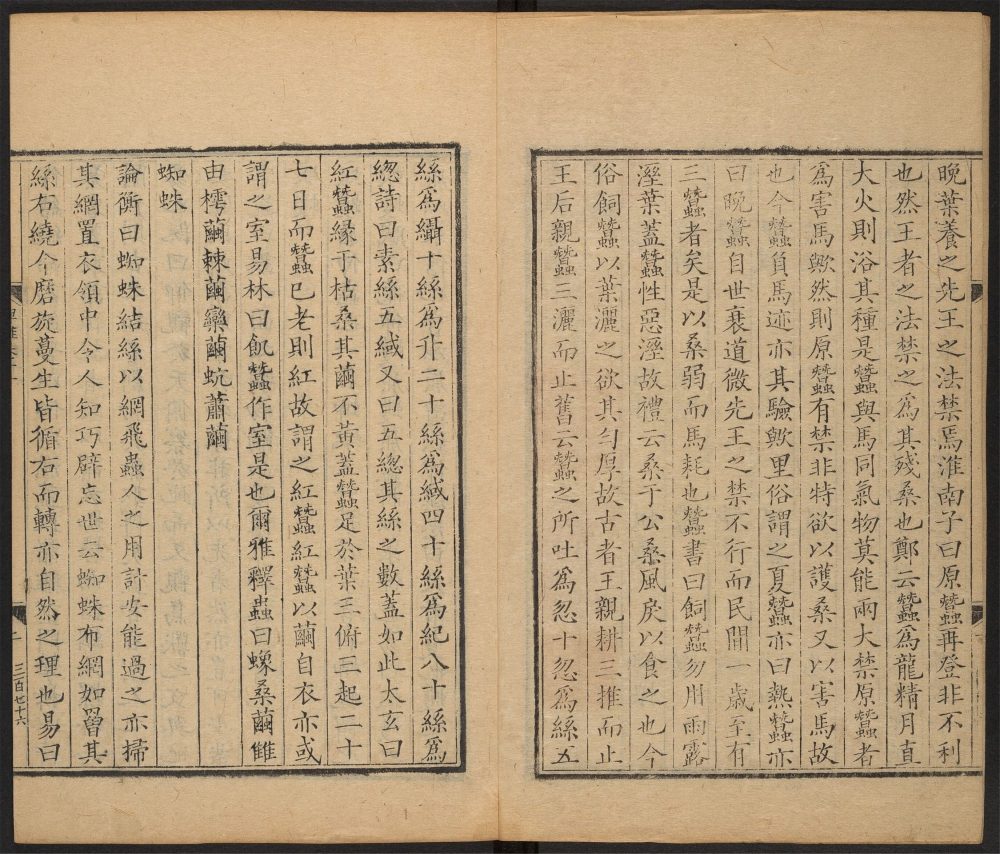 晚葉養之先王之法禁焉淮南子曰原蠶再登非不利
也然王者之法禁之爲其殘桑也鄭云蠶爲龍精月直
大火則浴其種是蠶與馬同氣物莫能兩大禁原蠶者
爲害馬歟然則原蠶有禁非特欲以護桑又以害馬故
也今蠶負馬迹亦其驗歟里俗謂之夏蠶亦曰熱蠶亦
曰晚蠶自世衰道微先王之禁不行而民間一歲至有
三蠶者矣是以桑弱而馬耗也蠶書曰飼蠶勿用雨露
溼葉蓋蠶性惡溼故禮云桑于公桑風戾以食之也今
俗飼蠶以葉灑之欲其勻厚故古者王親耕三推而止
王后親蠶三灑而止舊云蠶之所吐爲忽十忽爲絲五
絲爲𦆯十絲爲升二十絲爲緎四十絲爲紀八十絲爲
緫詩曰素絲五緎又曰五緫其絲之數蓋如此太玄曰
紅蠶緣于枯桑其繭不黃蓋蠶足於葉三俯三起二十
七日而蠶已老則紅故謂之紅蠶紅蠶以繭自衣亦或
謂之室易林曰飢蠶作室是也爾雅釋蟲曰蟓桑繭雔
由樗繭棘繭欒繭蚢蕭繭
蜘蛛
論衡曰蜘蛛結絲以網飛蟲人之用計安能過之亦掃
其網置衣領中令人知巧辟忘世云蜘蛛布網如罾其
絲右繞今磨旋蔓生皆循右而轉亦自然之理也易曰
三百七十六